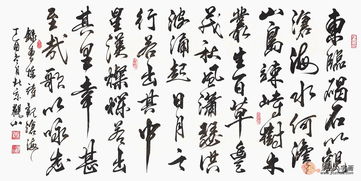 東臨碣石以觀
滄海水何澹澹
山島竦峙樹木
叢生百草豐
茂秋風蕭瑟洪
波涌起日月之
行若出其中
星漢燦爛若出
其里幸甚
至哉歌以詠志
錄曹操詩觀滄海
丁酉冬月